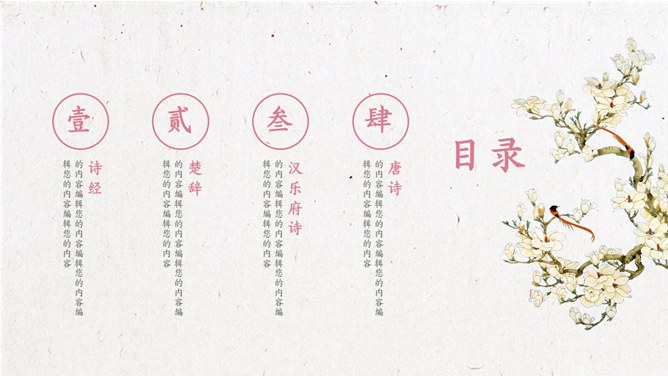 目录
壹
诗经
的内容编辑您的内容编辑您的内容编
辑您的内容编辑您的内容
贰
楚辞
的内容编辑您的内容编辑您的内容编
辑您的内容编辑您的内容
叁
汉乐府诗
的内容编辑您的内容编辑您的内容编
辑您的内容编辑您的内容
肆
唐诗
的内容编辑您的内容编辑您的内容编
辑您的内容编辑您的内容